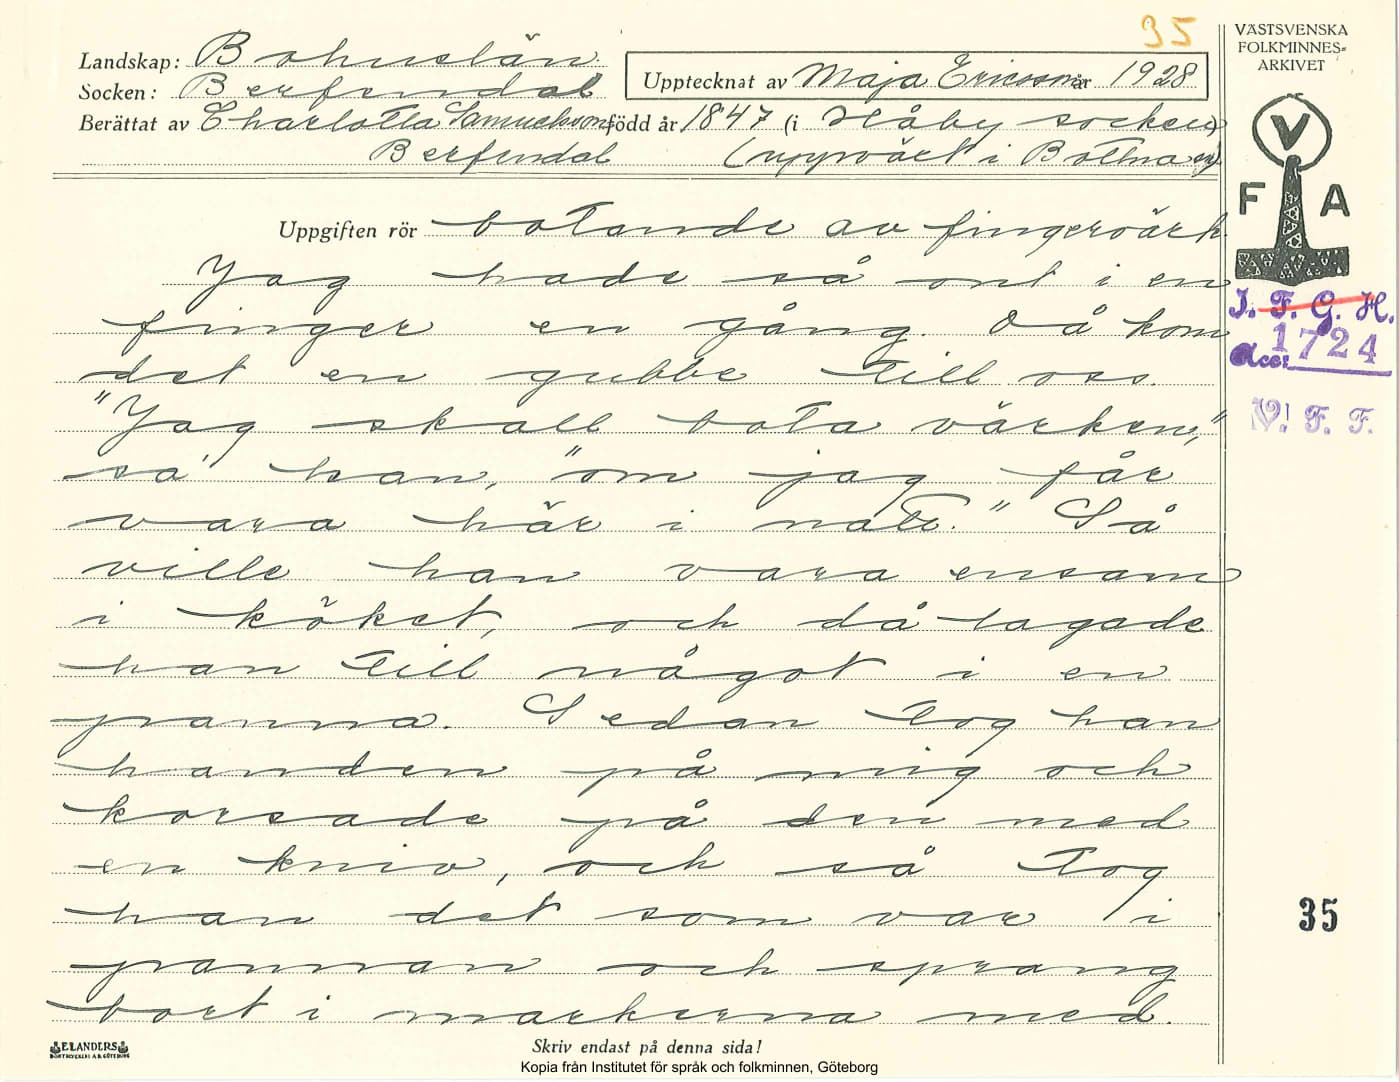 35
VÄSTSVENSKA
FOLKMINNES=
ARKIVET
Landskap: Bohuslän
Socken: Berfendal
Upptecknat av Maja Ericsson år 1928
Berättat av Charlotta Samuelsson född år 1847 (i Håby socken)
Berfendal (uppväxt i Bottna sn)
V
F A
Uppgiften rör botande av fingervärk.
Jag hade så ont i en
finger en gång. Då kom
det en gubbe till oss.
"Jag skall bota värken,"
sa' han, "om jag får
vara här i natt." Så
ville han vara ensam
i köket, och då lagade
han till något i en
panna. Sedan tog han
handen på mig och
korsade på den med
en kniv, och så tog
han det som var i
pannan och sprang
bort i markerna med.
I. F. G. H.
Acc: 1724
V. F. F.
35
ELANDERS
BOKTRYCKERI A.B. GÖTEBORG
Skriv endast på denna sida!
Kopia från Institutet för språk och folkminnen, Göteborg